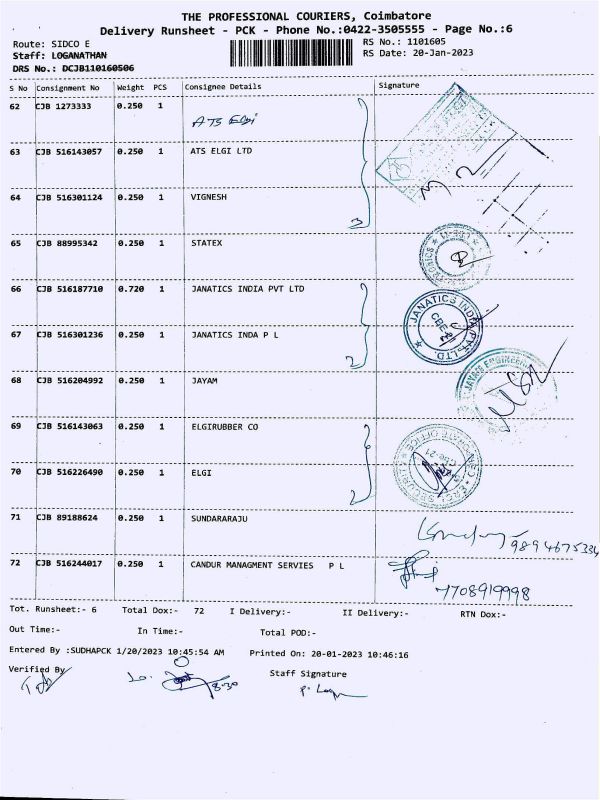 THE PROFESSIONAL COURIERS, Coimbatore
Delivery Runsheet - PCK - Phone No.:0422-3505555 - Page No.:6
Route: SIDCO E
RS No.: 1101605
Staff: LOGANATHAN
RS Date: 20-Jan-2023
DRS No.: DCJB110160506
S No Consignment No Weight PCS Consignee Details Signature
62 CJB 1273333 0.250 1 ATS Elgi
63 CJB 516143057 0.250 1 ATS ELGI LTD
64 CJB 516301124 0.250 1 VIGNESH
3
65 CJB 88995342 0.250 1 STATEX
66 CJB 516187710 0.720 1 JANATICS INDIA PVT LTD
JANATICS INDIA PVT. LTD. CBE-21
67 CJB 516301236 0.250 1 JANATICS INDA P L
2
68 CJB 516204992 0.250 1 JAYAM
69 CJB 516143063 0.250 1 ELGIRUBBER CO
70 CJB 516226490 0.250 1 ELGI
2
71 CJB 89188624 0.250 1 SUNDARARAJU
9894675334
72 CJB 516244017 0.250 1 CANDUR MANAGMENT SERVIES P L
7708919998
Tot. Runsheet:- 6 Total Dox:- 72 I Delivery:- II Delivery:- RTN Dox:-
Out Time:- In Time:- Total POD:-
Entered By :SUDHAPCK 1/20/2023 10:45:54 AM Printed On: 20-01-2023 10:46:16
Verified By Staff Signature
8:30